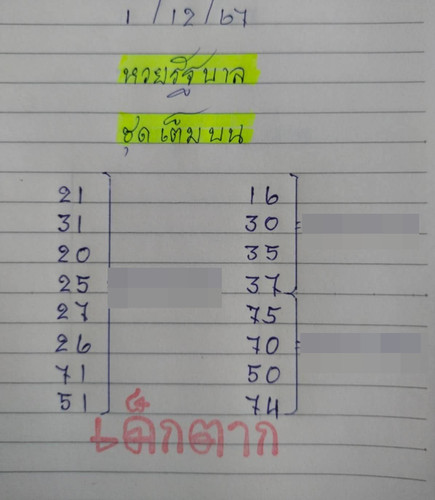 1/12/67
หวยรัฐบาล
ชุดเต็มบน
21 16
31 30 =
20 35
25 37
27 75
26 70 =
71 50
51 74
เด็กตาก